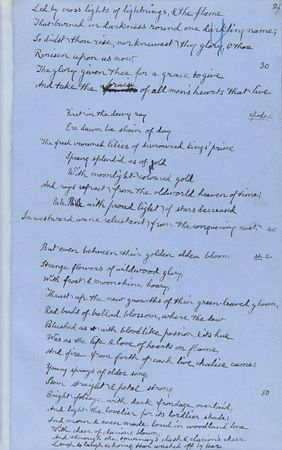 2/
Led by cross lights of lightnings, & the flame
That burned in darkness round one darkling name;
So didst thou rise, nor knewest thy glory, O thou
Re-risen upon us now,
The glory given thee for a grace to give 30
And take the praise of all men's hearts that live.
First in the dewy ray epode 1.
Ere dawn be slain of day
The fresh crowned lilies of discrowned kings' prime
Sprang splendid as of old
With moonlight-coloured gold
And rays refract from the oldworld heaven of time;
Pale with proud light of stars decreased
In westward wane reluctant from the conquering east. 40
But even between their golden olden bloom str. 2.
Strange flowers of wildwood glory
With frost & moonshine hoary
Thrust up the new growths of their green-leaved gloom,
Red buds of ballad blossom, where the dew
Blushed as with bloodlike passion, & its hue
Was as the life & love of hearts on flame,
And fire from forth of each live chalice came:
Young sprays of elder song,
Stem straight & petal strong, 50
Bright foliage with dark frondage overlaid,
And light the lovelier for its lordlier shade;
And morn & even made loud in woodland lone
With cheer of clarions blown,
And through the tourney's clash & clarion's cheer
Laugh to laugh echoing, tear washed off by tear.